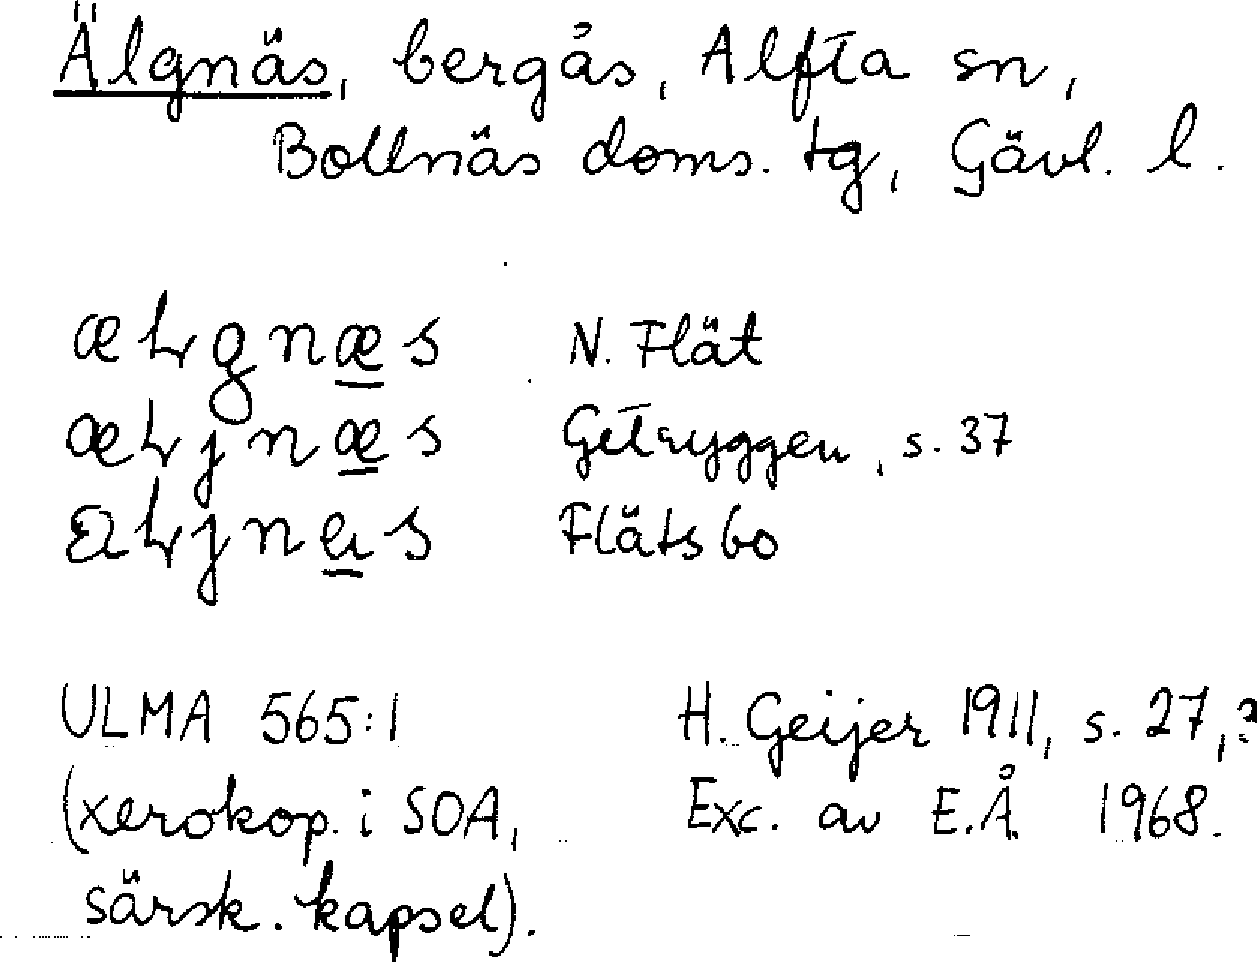 Älgnäs, bergås, Alfta sn,
Bollnäs doms. tg, Gävl. l.
N. Flät
Getryggen, s. 37
Flätsbo
ULMA 565:1 H. Geijer 1911, s. 27,
(xerokop. i SOA, Exc. av E.Å. 1968.
särsk. kapsel).